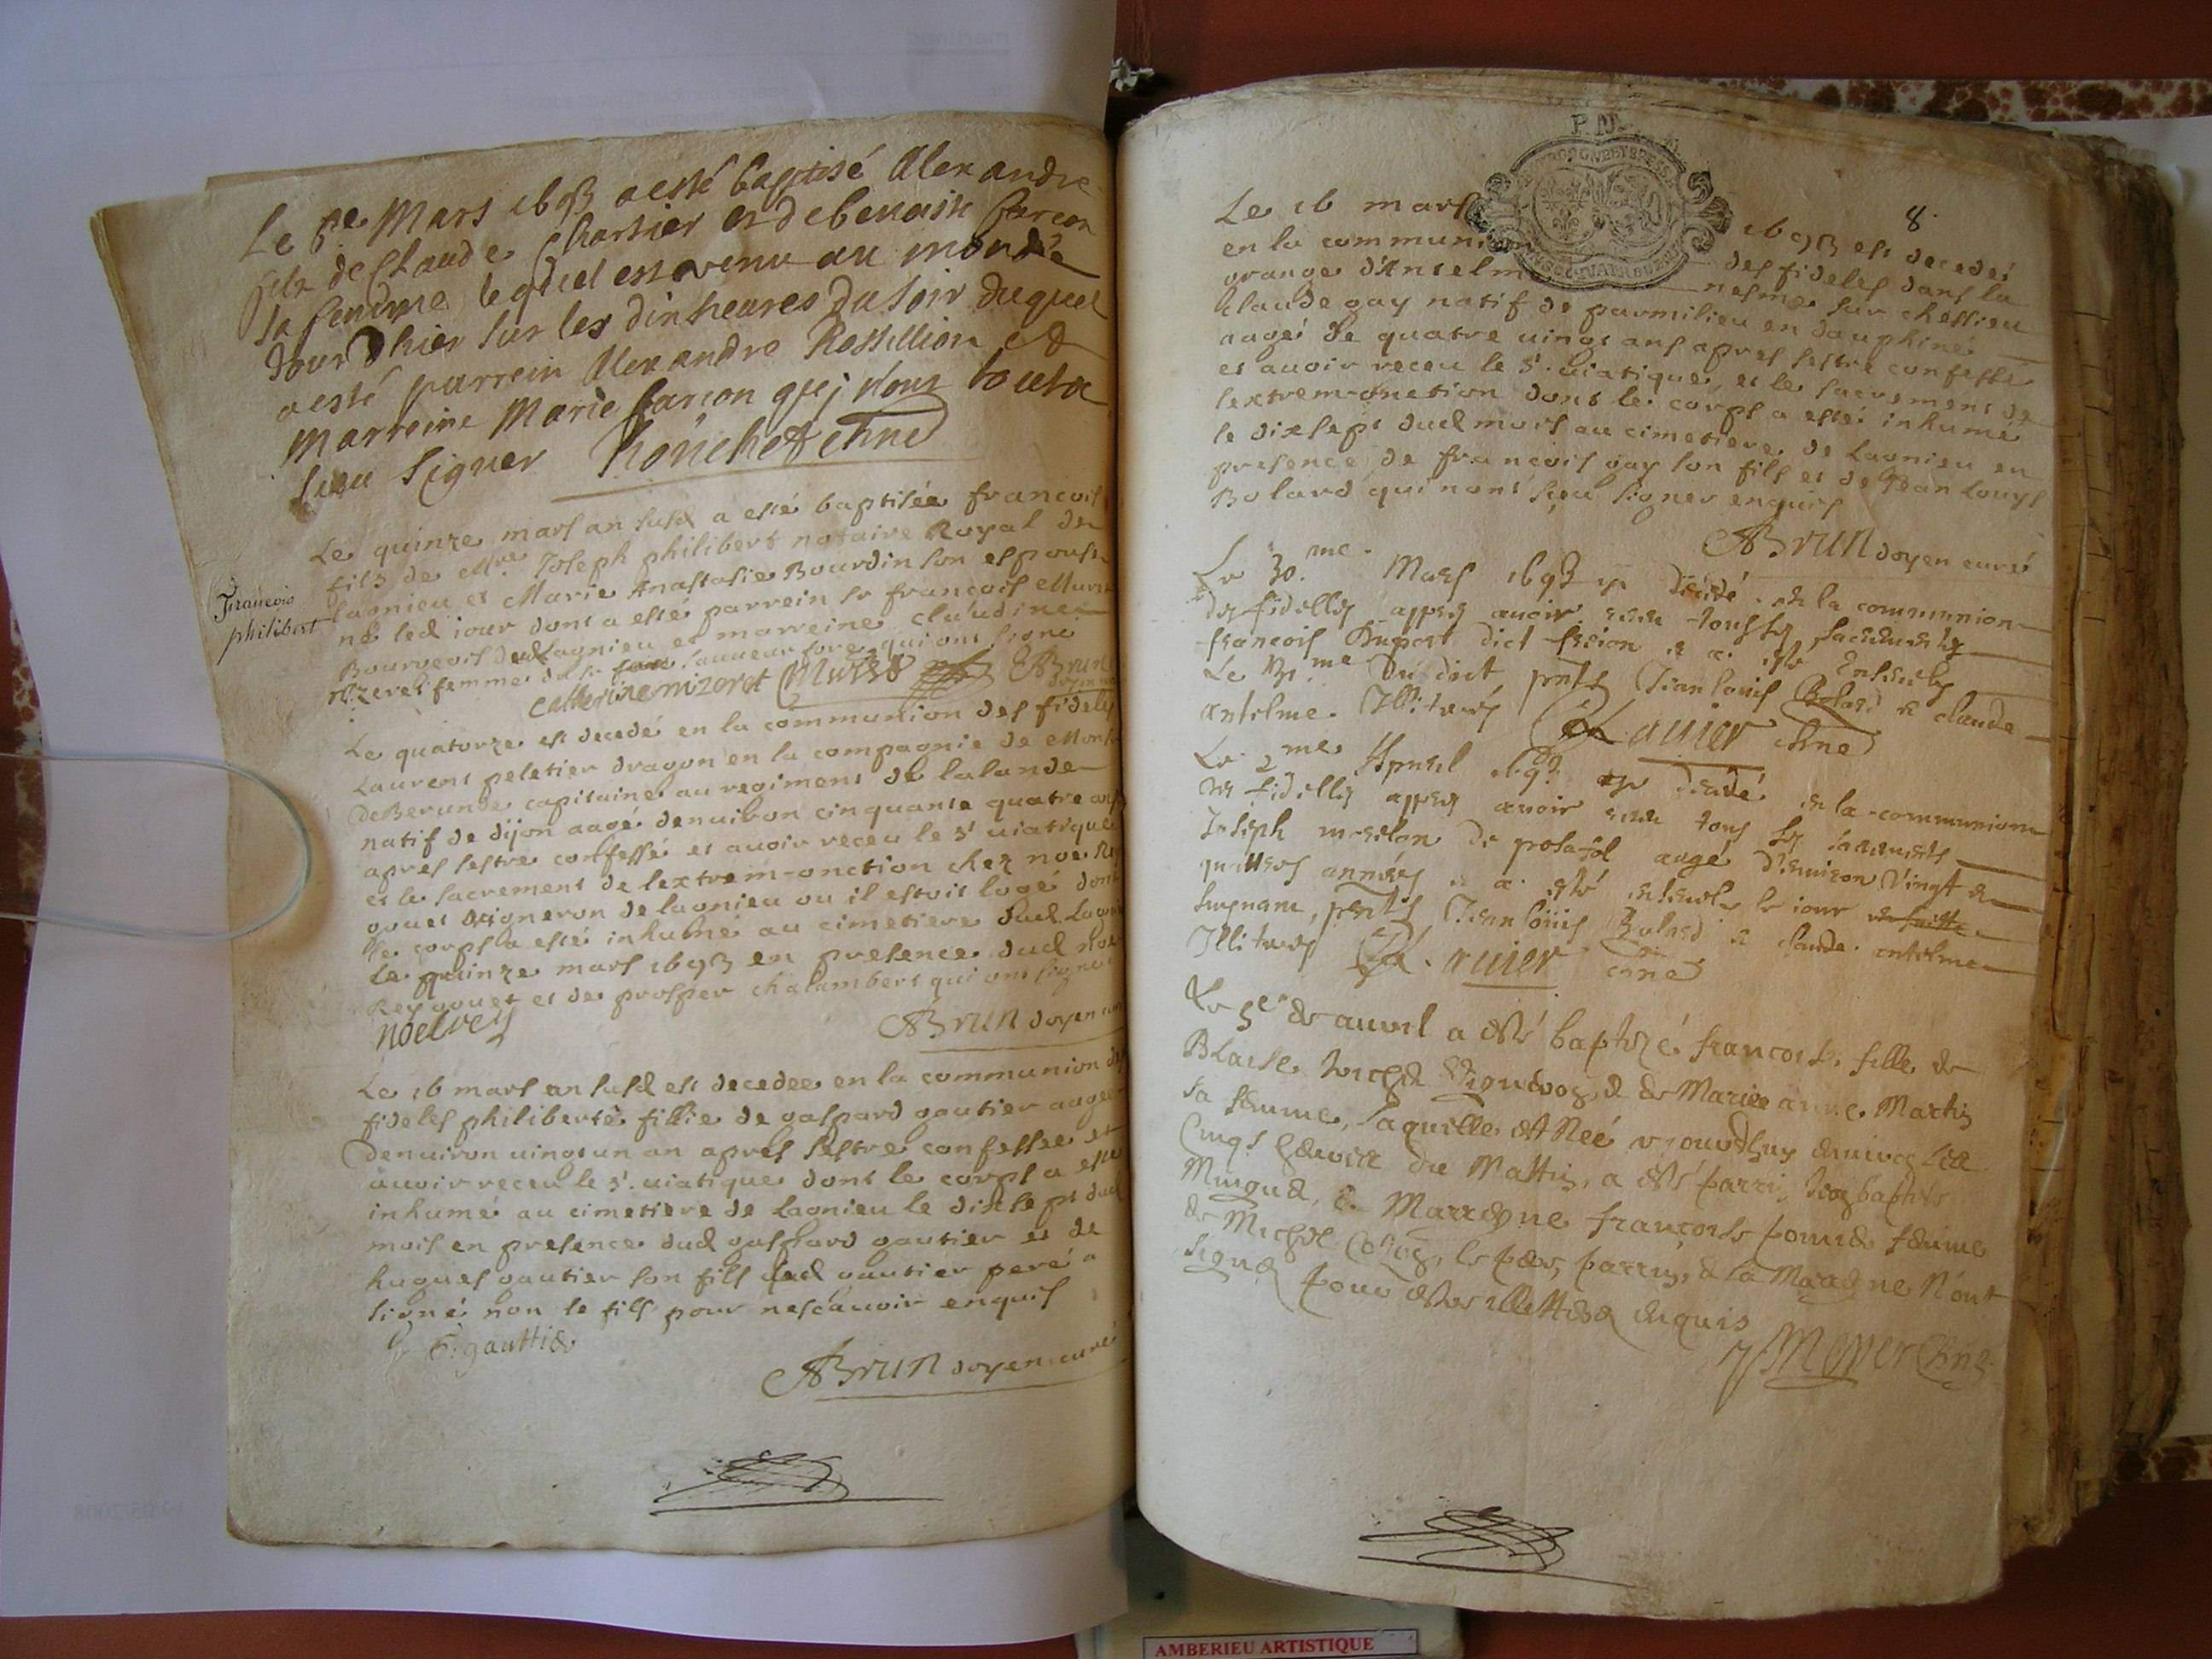 Le 6e Mars 1693 a esté baptisé Alexandre
fils de Claude Chartier et de benoiste farcon
sa femme lequel est venu au monde
Jour dhier sur les dix heures du soir duquel
a esté parrein Alexandre Rossillion et
marreine Marie farcon qui nont
sceu signer
Le quinze mars an susd a esté baptisée francois
fils de Mre Joseph philibert notaire Royal de
lagnieu et Marie Anastasie Bourdin son espouse
né led iour dont a esté parrein sr francois
Bourgeois dud Lagnieu et marreine claudine
femme de sr sauueur fore qui ont signé
Francois
philibert
catherine mizeret ABrun
Le quatorze est decedé en la communion des fideles
Laurent peletier dragon en la compagnie de
capitaine au regiment de lalande
natif de dijon aagé denuiron cinquante quatre ans
apres sestre confessé et auoir receu le st uiatique
et le sacrement de lextrem-onction chez noel Rey
vigneron de lagnieu ou il estoit logé dont
le corps a esté inhumé au cimetiere dud Lagnieu
Le quinze mars 1693 en presence dud noel
Rey et de prosper chalambert qui ont signé
noel rey ABrun doyen curé
Le 16 mars an susd est decedee en la communion des
fideles philiberte fillie de gaspard gautier aagee
denuiron uingt un an apres sestre confessee et
auoir receu le st. uiatique dont le corps a esté
inhumé au cimetiere de Lagnieu le dixsept dud
mois en presence dud gaspard gautier et de
hugues gautier son fils led gautier pere a
signé non le fils pour nescauoir enquis
G. gauttier
ABrun doyen curé
8.
Le 16 mars 1693 est decedé
en la communion des fideles dans la
grange d'Anselme sur chessieu
claude gay natif de parmilieu en dauphiné
aagé de quatre uingt ans apres sestre confessé
et auoir receu le st. uiatique, et le sacrement de
lextrem-onction dont le corps a esté inhumé
le dixsept dud mois au cimetiere de Lagnieu en
presence de francois gay son fils et de Jean Louys
Bolard qui nont sçeu signer enquis
ABrun doyen curé
Le 30.me Mars 1693 decedé en la communion
des fidelles appres auoir receu tous les sacrements
francois Duport dict et a esté Enseuely
Le 31.me Du dict pnts Jean Louis Bolard et claude
antelme. Illiterés Lauier chne
Le 2me Apuril 1693 decedé en la communion
des fidelles appres auoir receu tous les sacrements
Joseph de aagé d'enuiron Vingt et
quattres années et a esté enseuely le iour
pnts Jean Louis Bolard et claude antelme
Illiterés Lauier chne
Le 5e de auuril a esté baptizé francoise fille de
Blaise vigneron, et de Marie anne Martin
sa femme, laquelle est Neé aiourdhuy enuiron les
Cinqs heures du Mattin, a esté parrin Jean baptiste
Minguet, et Marreyne francoise femme
de Michel le pere, parrin, et la Marreyne N'ont
signé pour estre illetteres enquis
Moyer Chne
AMBERIEU ARTISTIQUE